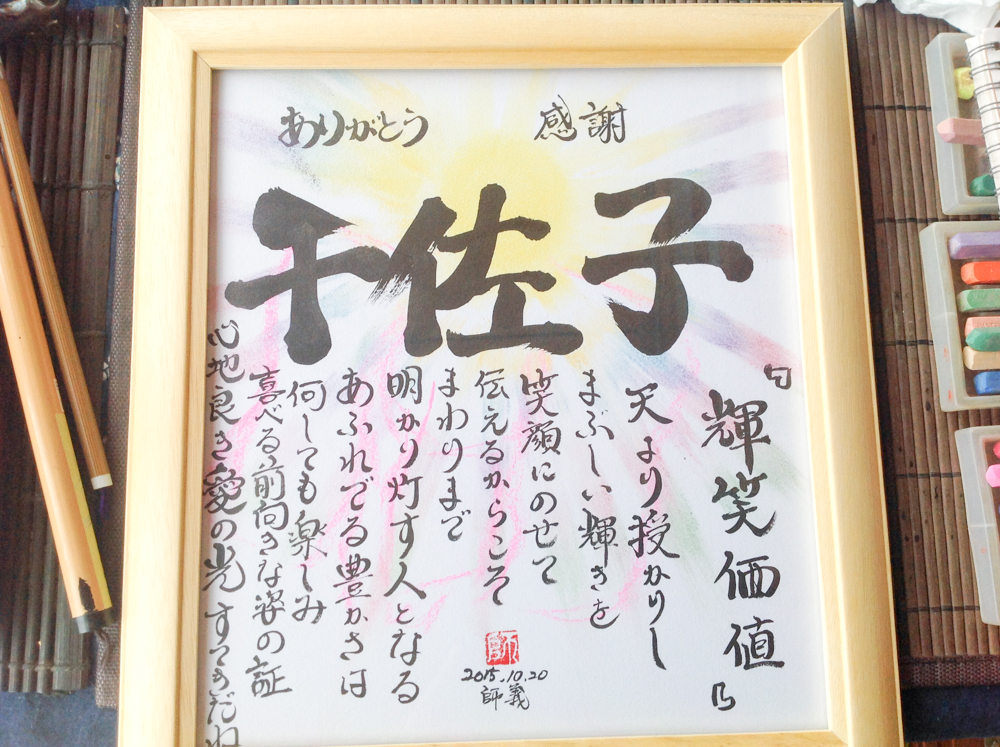 ありがとう 感謝
千佐子
『輝笑価値』
天より授かりし
まぶしい輝きを
笑顔にのせて
伝えるからこそ
まわりまで
明かり灯す人となる
あふれでる豊かさは
何しても楽しみ
喜べる前向きな姿の証
心地良き愛の光すてきだね
師
2015.10.20
師義